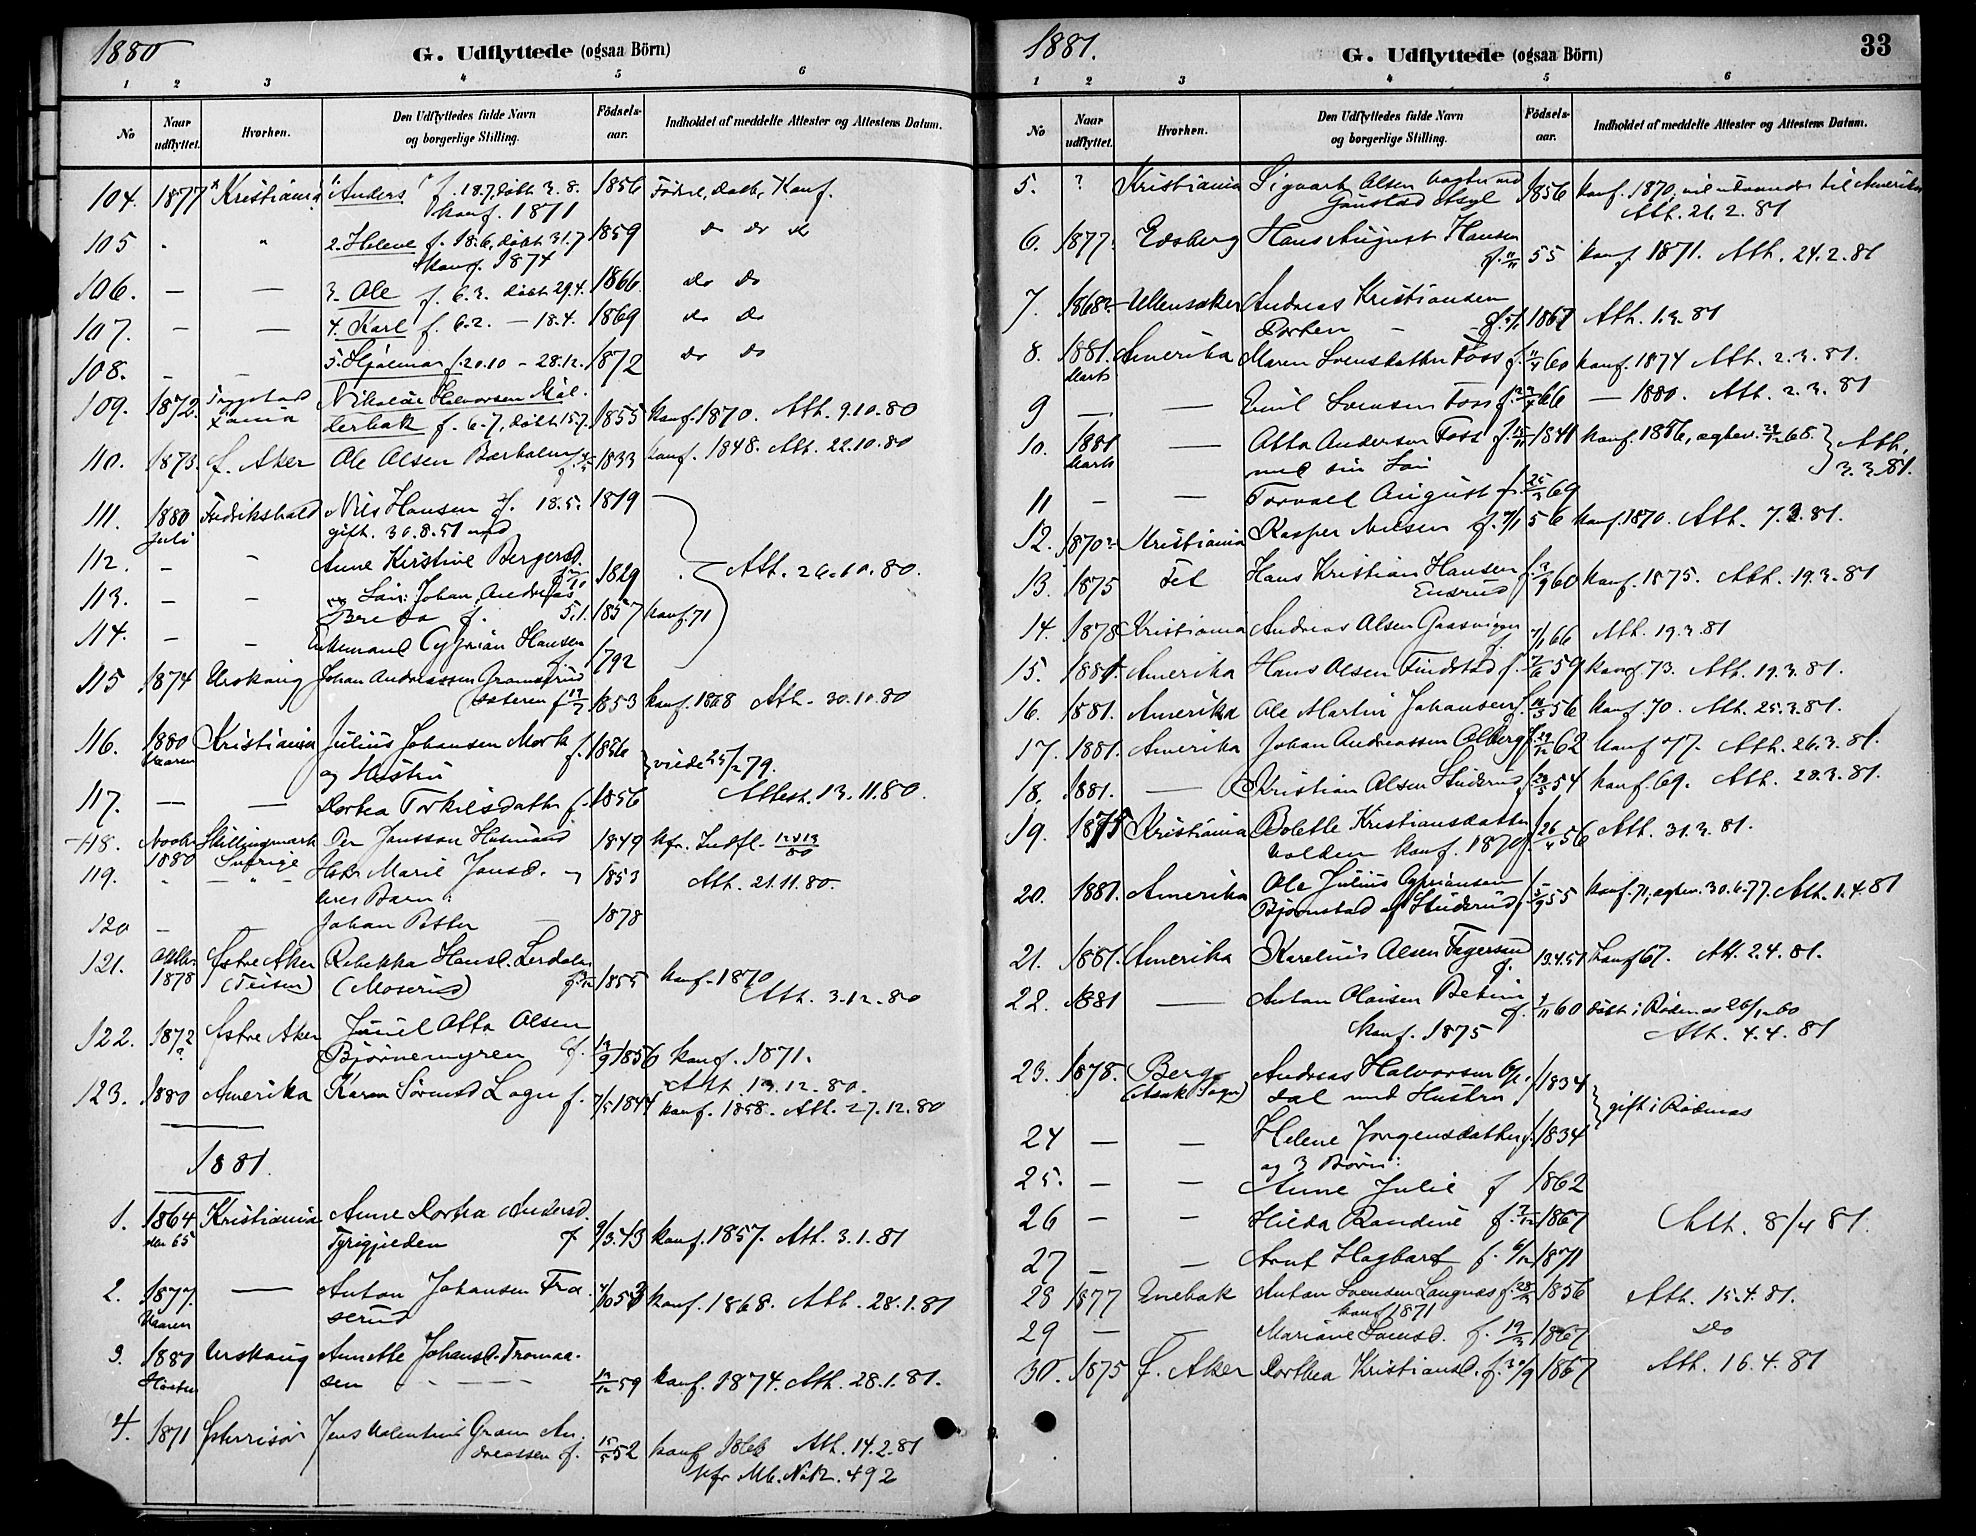 1880
G. Udflyttede (ogsaa Börn)
1 2 3 4 5 6
No Naar udflyttet. Hvorhen. Den Udflyttedes fulde Navn og borgerlige Stilling. Födsels-aar. Indholdet af meddelte Attester og Attestens Datum.
104. 1877 Kristiania 1. Anders f. 18.7, döbt 3. 8. 1856 Födsel, daab, Konf.
konf. 1871
105 " 2. Helene f. 18.6, döbt 31.7 1859 do do do
konf. 1874
106. — — 3. Ole f. 6.3. döbt 29.4. 1866 do do
107. — — 4. Karl f. 6.2. — 18.4. 1869 do do
108. — — 5. Hjalmar f. 20.10 — 28.12. 1872 do do
109. 1872. Nikolai Halvorsen Møl-
derbak f. 6.7, döbt 15.7. 1855 konf. 1870. Att. 9.10.80
110. 1873. Ø. Aker Ole Olsen Barholen 1833 konf. 1848. Att. 22.10.80
111. 1880 Fredrikshald Nils Hansen f. 18.5. 1819
Juli gift. 30.8.51 med
112. — " Anne Kirstine Bergersd. 1829 Att. 26.10.80.
113. — — og Søn: Johan Andreas
Breda f. 5.1. 1857 konf. 71
114. — " Enkemand Cyprian Hansen
f. 1792
115 1874 Urskoug Johan Andreassen
f 19/7 1853 konf. 1868 Att. 30.10.80
116. 1880 Kristiania Julius Johansen Mork f. 1856
Vaaren og Hustru viede 25/2 79.
117. — — Dorthea Torkilsdatter f. 1856 Attest. 13.11.80.
118. Novbr. Skillingmark Per Jansson Husmand 1849 kfr. Indfl.
1880 Sverige
119. Hstr Marie Jonsd. 1853 Att. 21.11.80.
deres Barn:
120 — Johan Petter 1878
121. Oktbr. Østre Aker Rebekka Hansd. Lerdalen
1878 (Teisen) (Moserud) 1855 konf. 1870
Att. 3.12.80
122. 1872 Østre Aker Juul Otto Olsen
? Bjørnemyren f. 13/9 1856 konf. 1871.
Att. 13.12.80.
123. 1880 Amerika Karen Sørensd f. 7/5 1844 konf. 1858. Att. 27.12.80
1881.
1. 1864 Kristiania Anne Dorthea Andersd.
eller 65 f 9/3.43 konf. 1857. Att. 3.1.81
2. 1877. — Anton Johansen Fra-
Vaaren serud 4/10 53 konf. 1868. Att. 28.1.81
3. 1880 Urskoug Annette Johansd. Tromaa-
Høsten sen 59 konf. 1874. Att. 28.1.81.
4. 1871 Østerrisør Jens Valentin Gram An-
dreassen f. 15/5 52 konf. Att. 14.2.81
kfr Mb. No 2. 492
1881.
G. Udflyttede (ogsaa Börn)
33
1 2 3 4 5 6
No Naar udflyttet. Hvorhen. Den Udflyttedes fulde Navn og borgerlige Stilling. Födsels-aar. Indholdet af meddelte Attester og Attestens Datum.
5. ? Kristiania Sigvart Olsen
Gaustad Asyl 1856 konf. 1870, vil udvandre til Amerika
Att. 21.2.81
6. 1877. Edsberg Hans August Hansen
f. 11/11 55 konf 1871. Att. 24.2.81
7. 1868? Ullensaker Andreas Kristiansen
1867 Att. 1.3.81
8. 1881. Amerika Maren Svensdatter Foss f. 60 konf. 1874 Att. 2.3.81.
Marts
9 — — Emil Svensen Foss f. 66 — 1880. Att. 2.3.81
10. 1881 — Otto Andersen Foss f. 1841 konf. 1856, egtev. 65. Att.
Marts med sin Søn 3.3.81.
11 — — Torvald August f. 25/3 69
12. 1870? Kristiania Kasper Nielsen f. 7/1 56 konf. 1870. Att. 7.3.81.
13. 1875 Fet Hans Kristian Hansen
f. 3/9 60 konf. 1875. Att. 19.3.81
14. 1878 Kristiania Andreas Olsen
f. 7/11 66 Att. 19.3.81
15. 1881. Amerika Hans Olsen Findstad f. 7/6 59 konf 73. Att. 19.3.81.
16. 1881. Amerika Ole Martin Johansen f. 56 konf. 70. Att. 25.3.81.
17. 1881. Amerika Johan Andreassen Olberg f. 62 konf 77. Att. 26.3.81.
18. 1881. — Kristian Olsen Studerud f. 54 konf. 69. Att. 28.3.81.
19. 1875 Kristiania Bolette Kristiansdatter
Volden konf. 1870 f. 26/4 56 Att. 31.3.81.
20. 1881. Amerika Ole Julius Cypriansen
Bjørnstad af Studerud f. 5/9 55 konf. 71, egtev. 30.6.77. Att. 1.4.81
21. 1881. Amerika Karelius Olsen Fagersand
f. 13.4.51 konf 67. Att. 2.4.81.
22. 1881 — Anton Olausen
f. 60 døbt i Rødenæs 26/1 60
konf. 1875 Att. 4.4.81
23. 1878. Berg Andreas Halvorsen Op-
(Asak Sogn) dal med Hustru 1834
gift i Rødenæs
24 — — Helene Jørgensdatter f. 1834
og 3 Børn:
25. — — Anne Julie f 1862
26 — — Hilda Randine f. 1867 Att. 8/4 81.
27 — — Arnt Hagbart f. 6/12 1871
28 1877 Enebak Anton Svensen Langnæs f. 1856 Att. 15.4.81.
konf 1871
29 — — Mariane f. 19/3 1867 do
30. 1875 Ø. Aker Dorthea Kristiansd. f. 30/9 1867 Att. 16.4.81